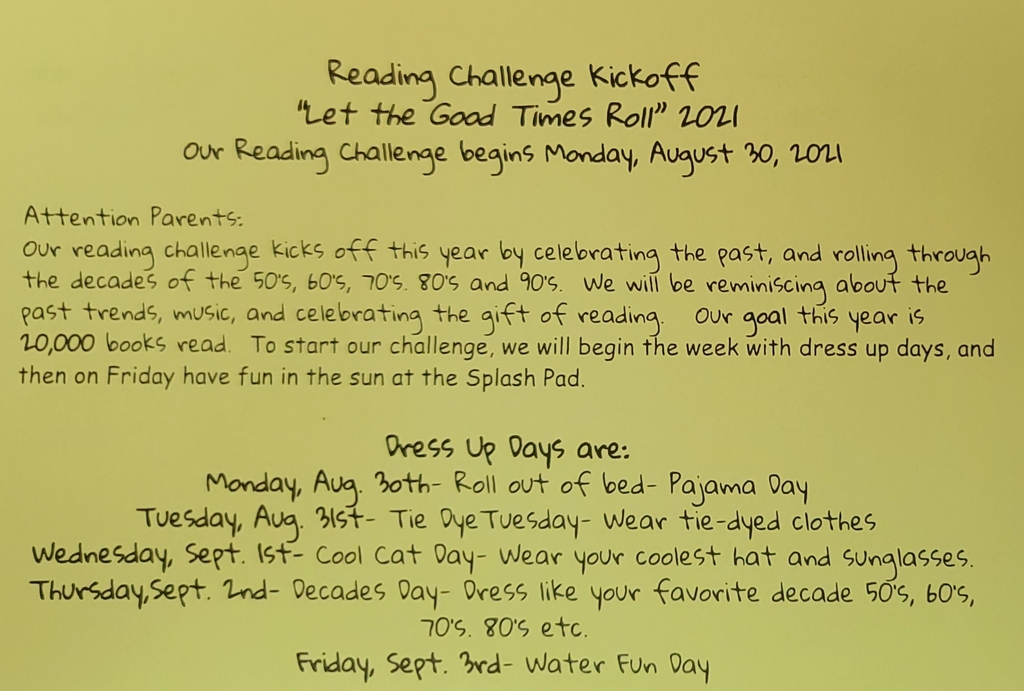 Reading Challenge Kickoff
"Let the Good Times Roll" 2021
Our Reading Challenge begins Monday, August 30, 2021
Attention Parents:
Our reading challenge kicks off this year by celebrating the past, and rolling through
the decades of the 50's, 60's, 70's. 80's and 90's. We will be reminiscing about the
past trends, music, and celebrating the gift of reading. Our goal this year is
20,000 books read. To start our challenge, we will begin the week with dress up days, and
then on Friday have fun in the sun at the Splash Pad.
Dress Up Days are:
Monday, Aug. 30th- Roll out of bed- Pajama Day
Tuesday, Aug. 31st- Tie Dye Tuesday- Wear tie-dyed clothes
Wednesday, Sept. 1st- Cool Cat Day- Wear your coolest hat and sunglasses.
Thursday,Sept. 2nd- Decades Day- Dress like your favorite decade 50's, 60's,
70's. 80's etc.
Friday, Sept. 3rd- Water Fun Day